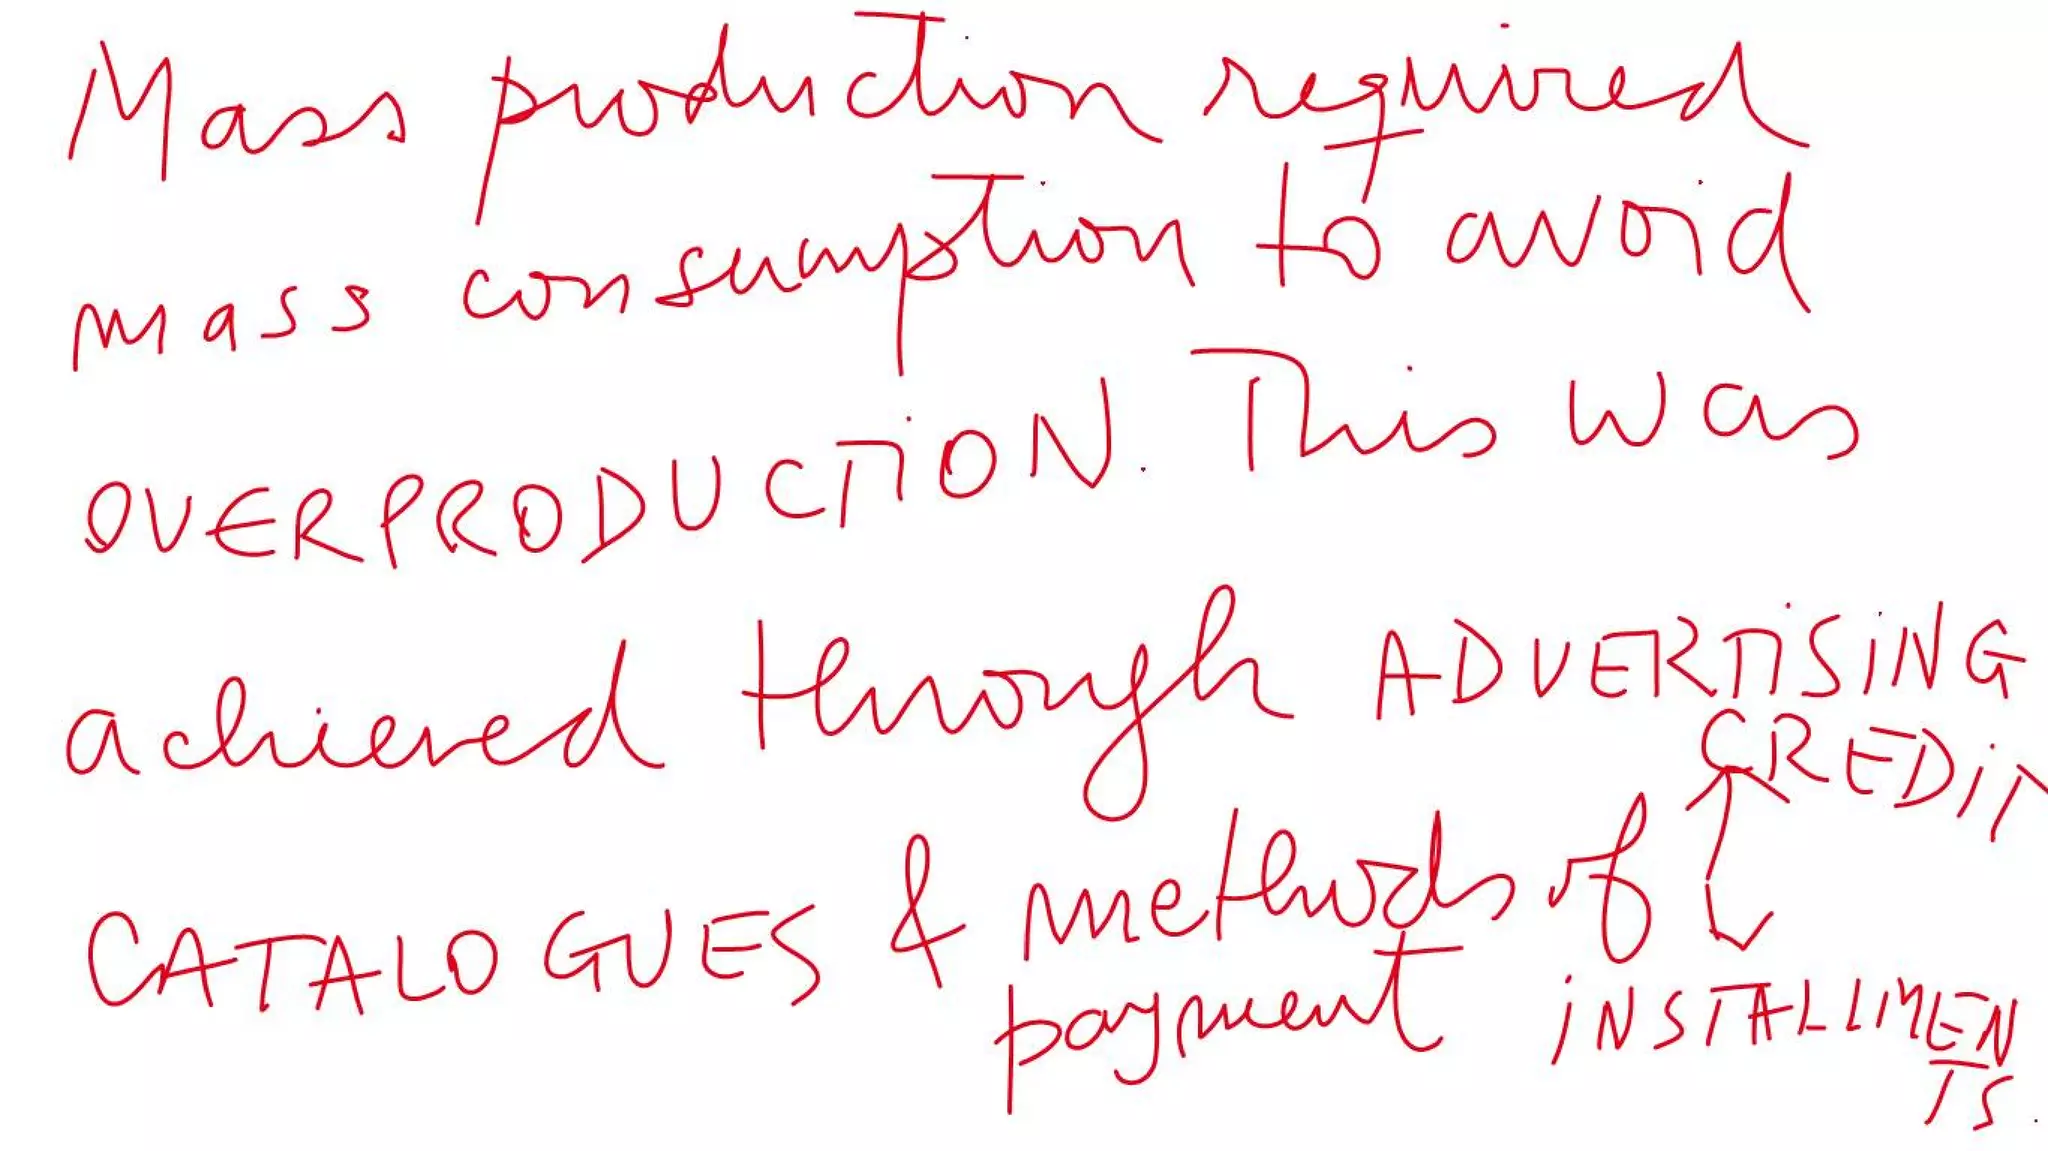 Mass production required
mass consumption to avoid
OVERPRODUCTION. This was
achieved through ADVERTISING
CATALOGUES & methods of
payment
CREDIT
INSTALLMEN
TS.